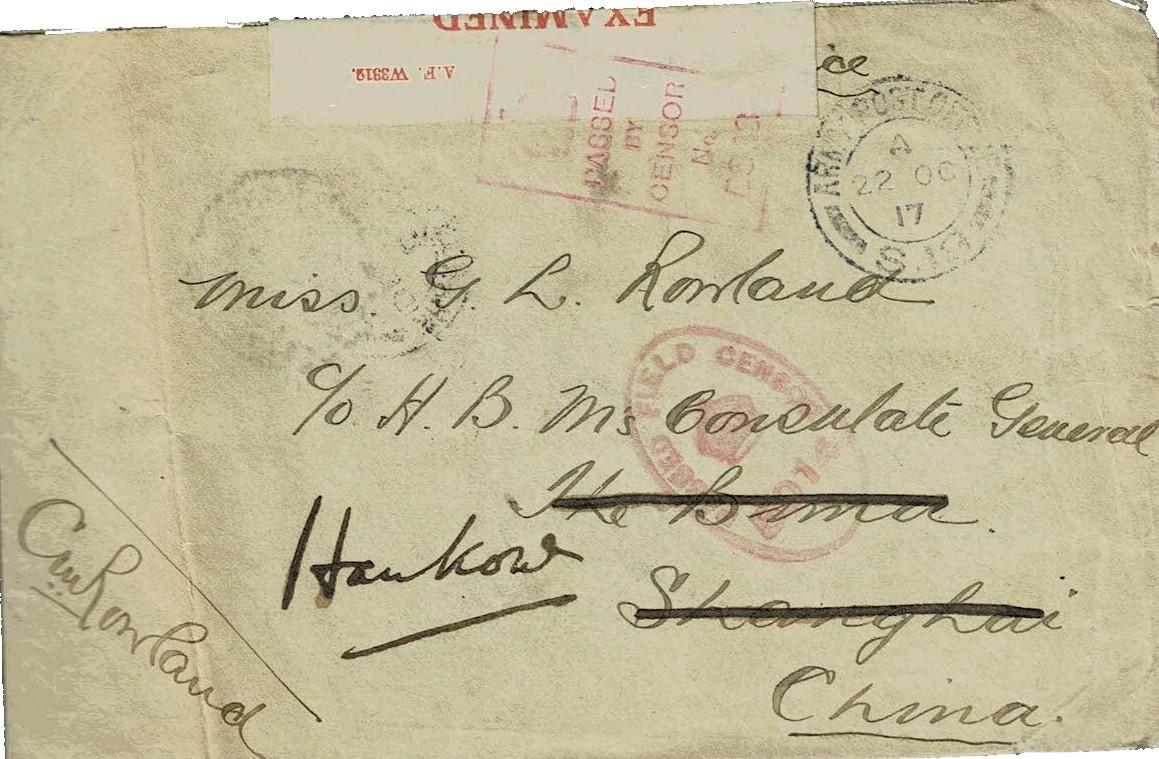 EXAMINED
A.F. W3912.
PASSED
BY
CENSOR
No.
ARMY POST OFFICE
A
22 OC
17
S.
Miss G L. Rowland
c/o H. B. Ms Consulate General
The Bund.
Hankow
Shanghai
China.
PASSED FIELD CENSOR
Rowland